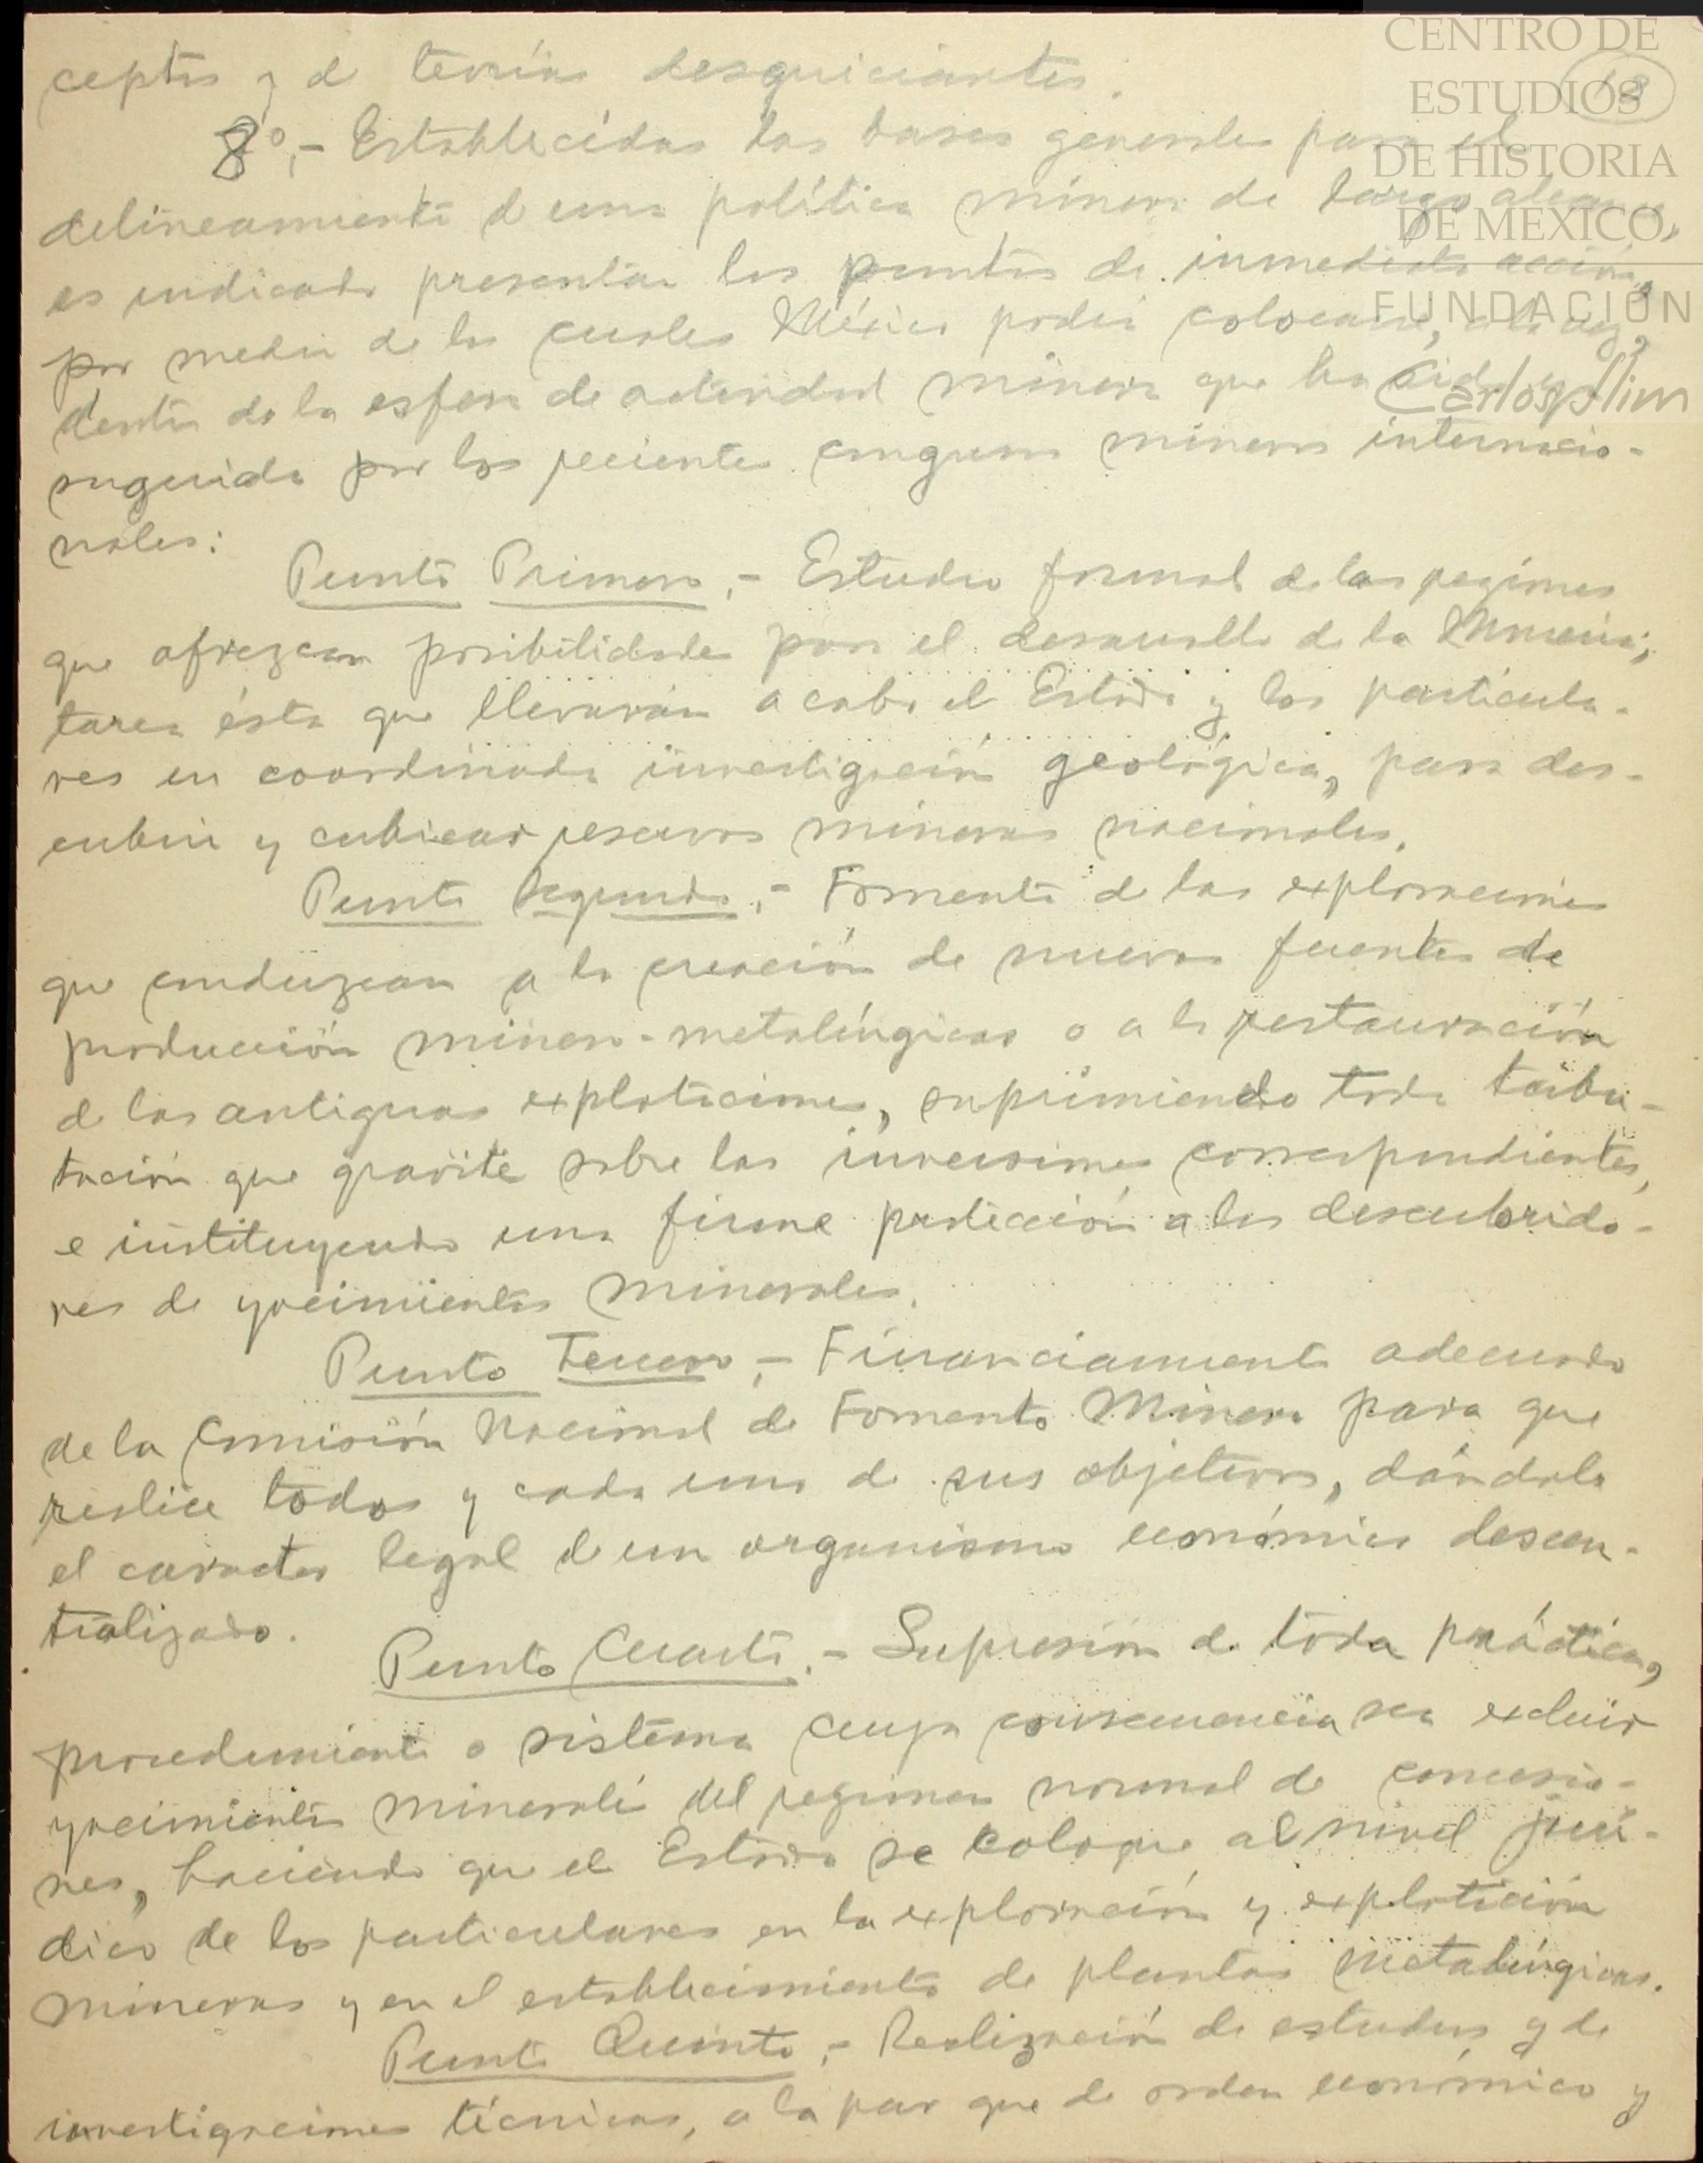 CENTRO DE
ESTUDIOS
DE HISTORIA
DE MEXICO
FUNDACIÓN
Carlos Slim
18
ceptos y de teorías desquiciantes.
8°,- Establecidas las bases generales para el
delineamiento de una política minera de largo alcance,
es indicado presentar los puntos de inmediata acción,
por medio de los cuales México podrá colocarse, a la vez,
dentro de la esfera de actividad minera que ha sido
sugerida por los recientes congresos mineros internacio-
nales:
Punto Primero,- Estudio formal de las regiones
que ofrezcan posibilidades para el desarrollo de la Minería;
tarea ésta que llevarán a cabo el Estado y los particula-
res en coordinada investigación geológica, para des-
cubrir y cubicar reservas mineras nacionales.
Punto Segundo,- Fomento de las exploraciones
que conduzcan a la creación de nuevas fuentes de
producción minero-metalúrgicas o a la restauración
de las antiguas explotaciones, suprimiendo toda tribu-
tación que gravite sobre las inversiones correspondientes,
e instituyendo una firme protección a los descubrido-
res de yacimientos minerales.
Punto Tercero,- Financiamiento adecuado
de la Comisión Nacional de Fomento Minero para que
realice todos y cada uno de sus objetivos, dándole
el caracter legal de un organismo económico descen-
tralizado.
Punto Cuarto.- Supresión de toda práctica,
procedimiento o sistema cuya consecuencia sea excluir
yacimientos minerales del regimen normal de concesio-
nes, haciendo que el Estado se coloque al nivel jurí-
dico de los particulares en la exploración y explotación
mineras y en el establecimiento de plantas metalúrgicas.
Punto Quinto,- Realización de estudios y de
investigaciones técnicas, a la par que de orden económico y